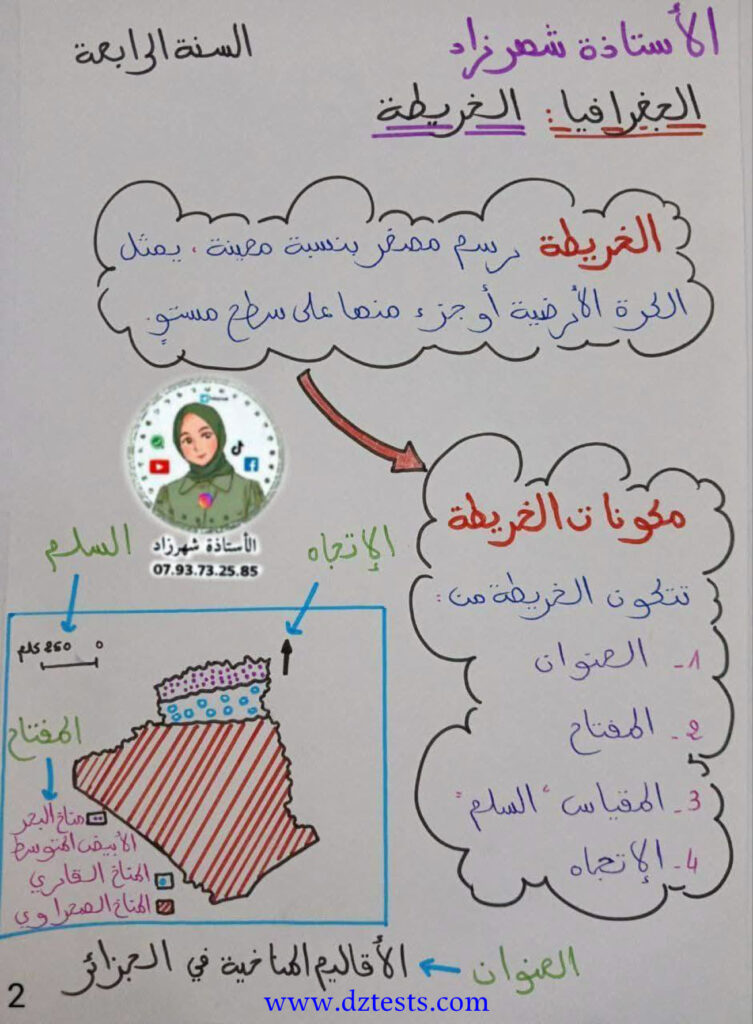 الأستاذة شهرزاد
السنة الرابعة
الجغرافيا: الخريطة
الخريطة رسم مصغر بنسبة معينة، يمثل
الكرة الأرضية أو جزء منها على سطح مستوٍ.
مكونات الخريطة
تتكون الخريطة من:
1- العنوان
2- المفتاح
3- المقياس "السلم"
4- الإتجاه
الأستاذة شهرزاد
07.93.73.25.85
السلم
الإتجاه
0 250 كلم
المفتاح
مناخ البحر
الأبيض المتوسط
المناخ القاري
المناخ الصحراوي
العنوان
الأقاليم المناخية في الجزائر
2
www.dztests.com